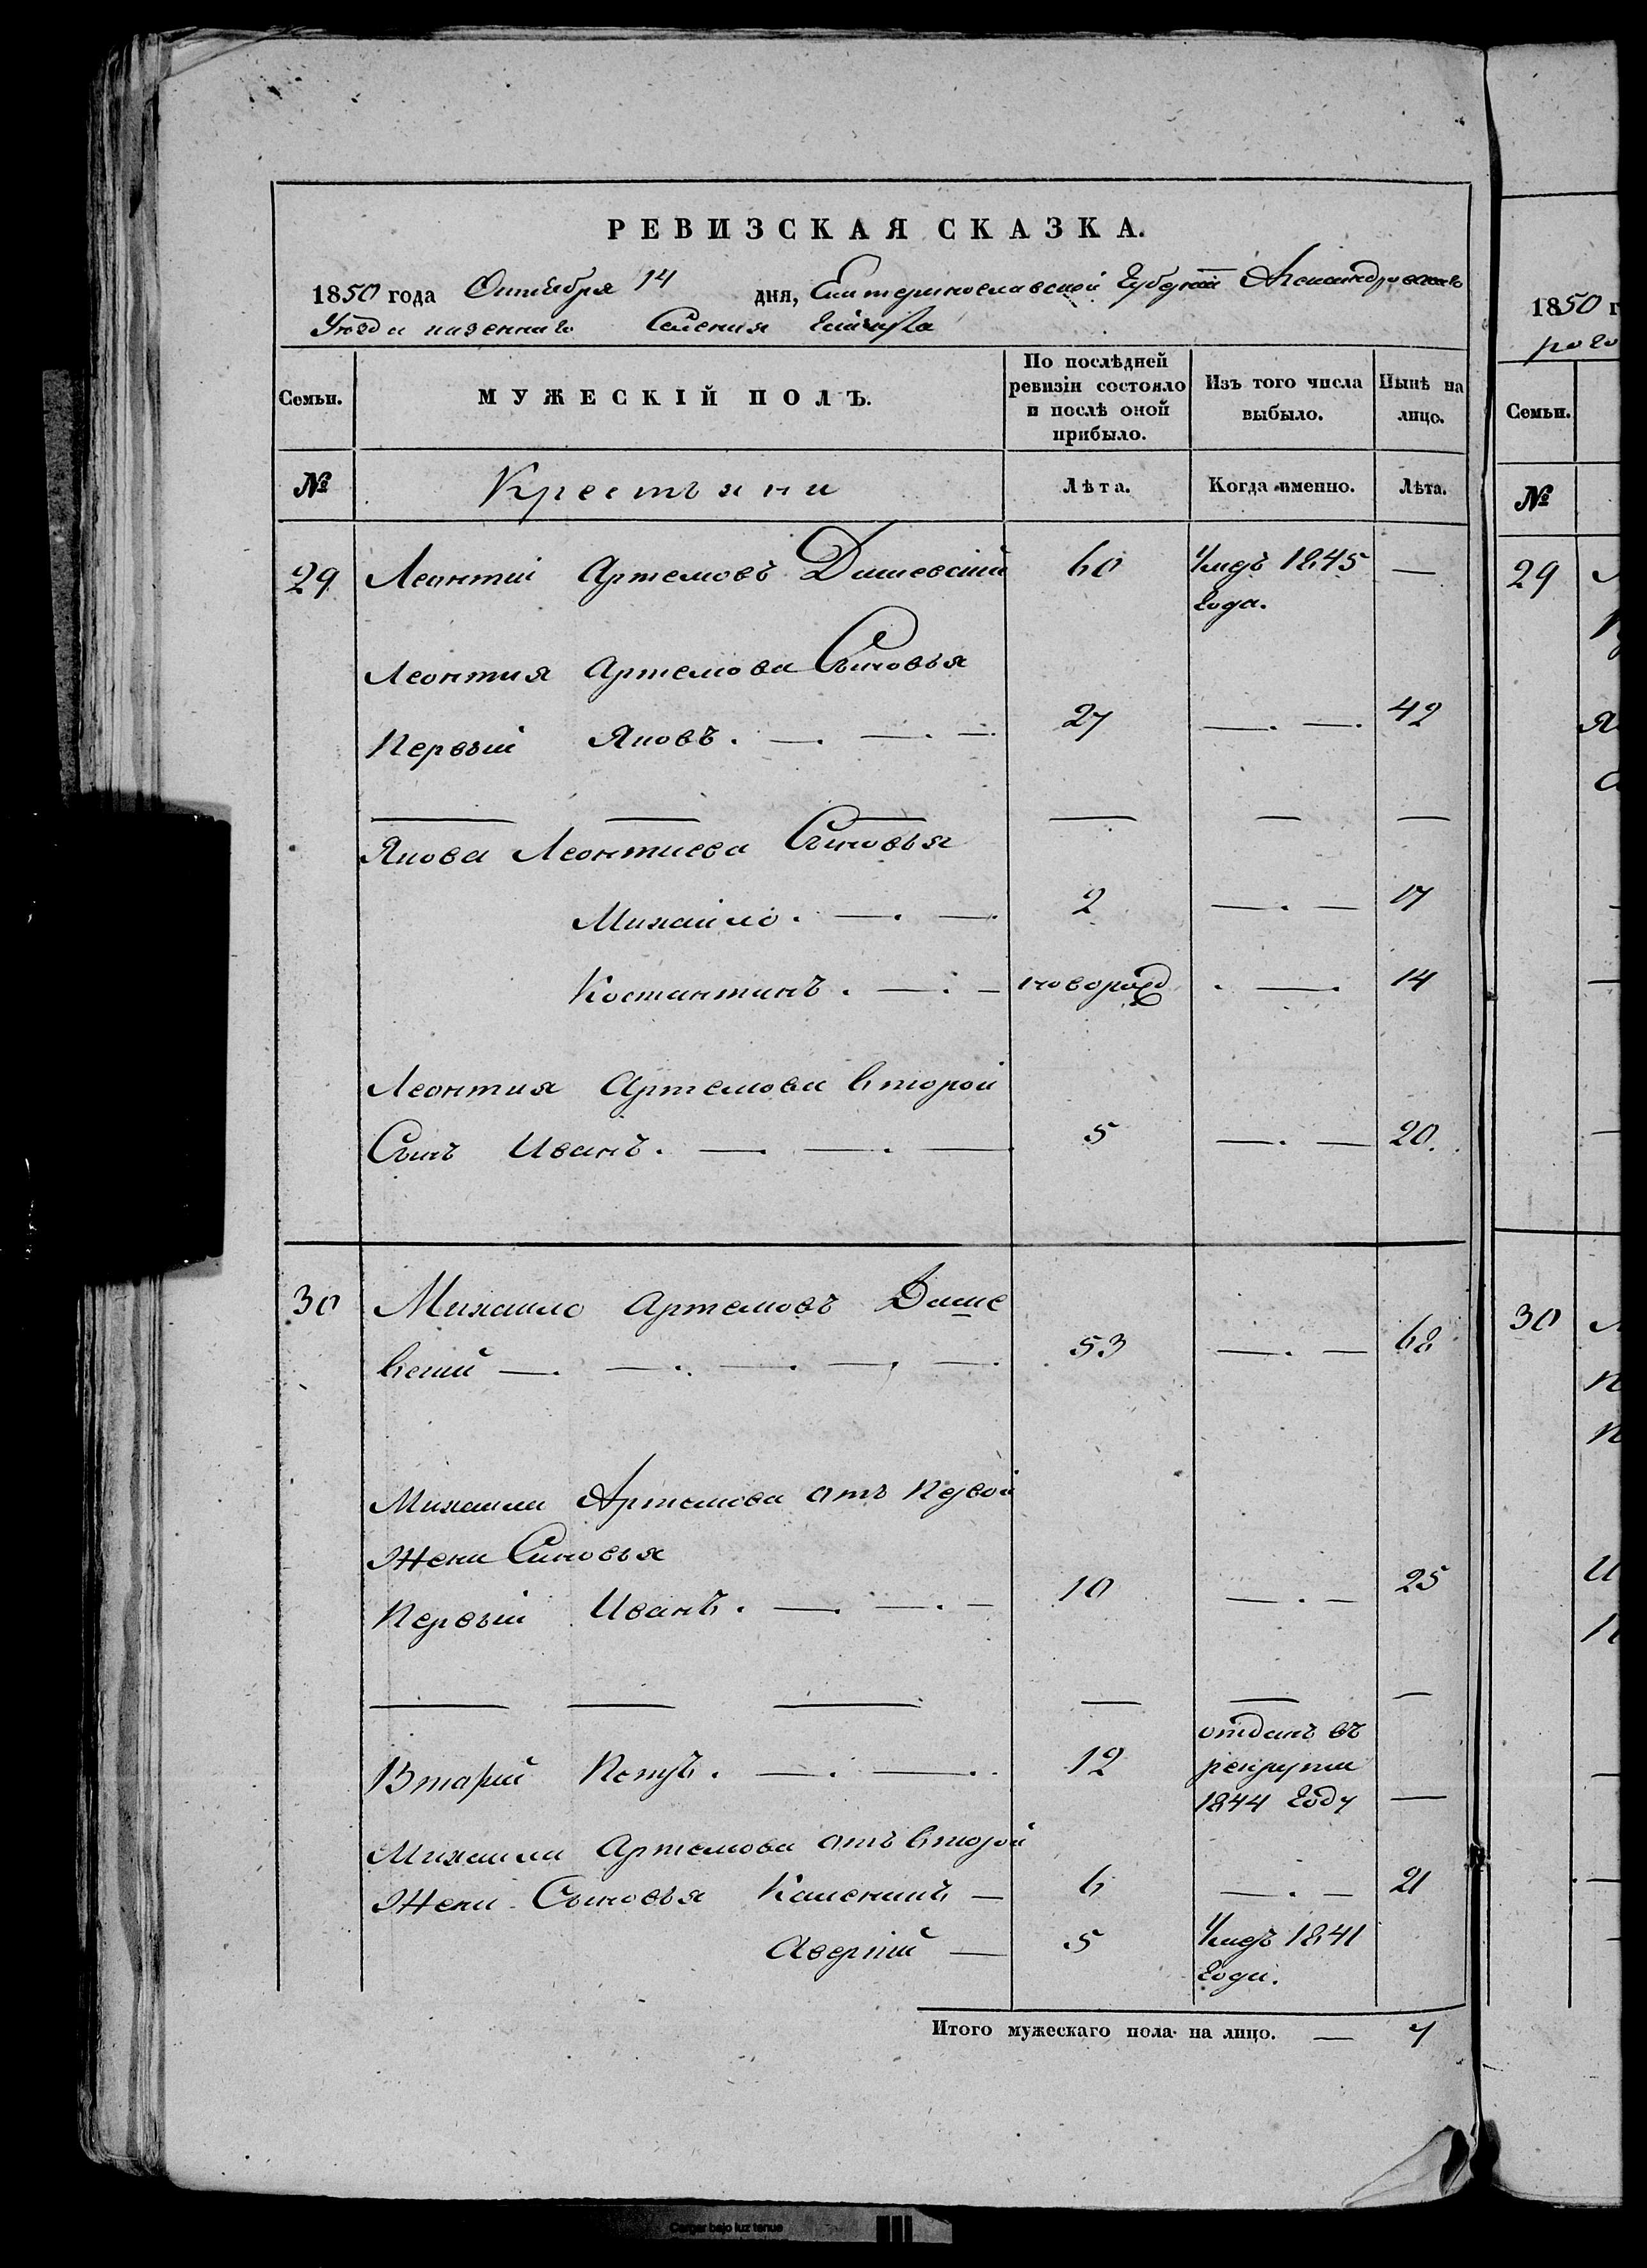 РЕВИЗСКАЯ СКАЗКА.
1850 года Октября 14 дня, Екатеринославской Губернии Александровскаго
Уѣзда казеннаго Селения
Семьи.
МУЖЕСКІЙ ПОЛЪ.
По послѣдней ревизіи состояло и послѣ оной прибыло.
Изъ того числа выбыло.
Нынѣ на лицо.
№
Крестьяни
Лѣта.
Когда именно.
Лѣта.
29 Леонтій Артемовъ Дашевскій 60 Умеръ 1845 —
года.
Леонтия Артемова Сыновья
Первый Яковъ. —. —. — 27 —. —. 42
— — — — — —
Якова Леонтиева Сыновья
Михайло. —. —. 2 —. — 17
Костантинъ. —. — новорожд . —. 14
Леонтия Артемова второй
Сынъ Иванъ. —. —. — 5 —. — 20.
30 Михайло Артемовъ Даше
вский —. —. —. —. —. 53 —. — 68
Михаила Артемова отъ первой
Жени Синовья
Первый Иванъ. —. —. — 10 —. — 25
— — — — — —
Вторый Петръ. —. —. 12 отданъ въ
рекруты
1844 Году —
Михаила Артемова отъ второй
Жени Сыновья Каленикъ — 6 —. — 21
Аверкій — 5 Умеръ 1841
года.
Итого мужескаго пола на лицо. — 7
1850 г
рого
Семьи.
№
29
30
Cargar bajo luz tenue